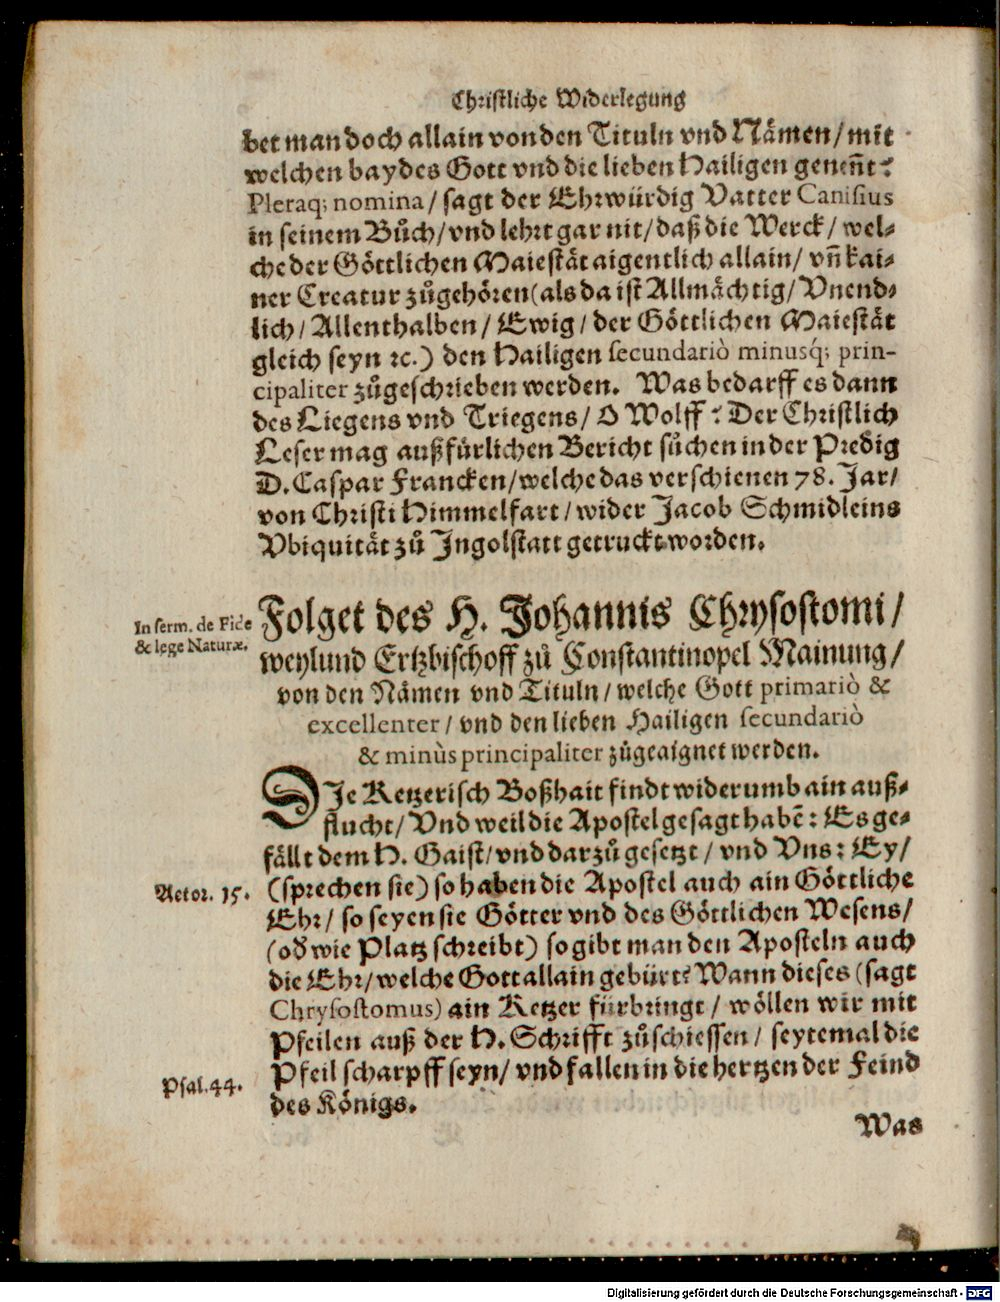 Christliche Widerlegung
bet man doch allain von den Tituln vnd Nämen/ mit
welchen baydes Gott vnd die lieben Hailigen geneñt?
Pleraq; nomina/ sagt der Ehrwürdig Vatter Canisius
in seinem Bůch/ vnd lehrt gar nit/ daß die Werck/ wel-
che der Göttlichen Maiestät aigentlich allain/ vñ kai-
ner Creatur zůgehören (als da ist Allmächtig/ Vnend-
lich/ Allenthalben/ Ewig/ der Göttlichen Maiestät
gleich seyn ꝛc.) den Hailigen secundariò minusq́; prin-
cipaliter zůgeschrieben werden. Was bedarff es dann
des Liegens vnd Triegens/ O Wolff? Der Christlich
Leser mag außfürlichen Bericht sůchen in der Predig
D. Caspar Francken/ welche das verschienen 78. Jar/
von Christi Himmelfart/ wider Jacob Schmidleins
Vbiquität zů Ingolstatt getruckt worden.
In serm. de Fide
& lege Naturæ.
Folget des H. Johannis Chrysostomi/
weylund Ertzbischoff zů Constantinopel Mainung/
von den Nämen vnd Tituln/ welche Gott primariò &
excellenter/ vnd den lieben Hailigen secundariò
& minùs principaliter zůgeaignet werden.
DIe Ketzerisch Boßhait findt widerumb ain auß-
flucht/ Vnd weil die Apostel gesagt habẽ: Es ge-
fällt dem H. Gaist/ vnd darzů gesetzt/ vnd Vns: Ey/
Actor. 15.
(sprechen sie) so haben die Apostel auch ain Göttliche
Ehr/ so seyen sie Götter vnd des Göttlichen Wesens/
(oð wie Platz schreibt) so gibt man den Aposteln auch
die Ehr/ welche Gott allain gebürt? Wann dieses (sagt
Chrysostomus) ain Ketzer fürbringt/ wöllen wir mit
Pfeilen auß der H. Schrifft zůschiessen/ seytemal die
Psal. 44.
Pfeil scharpff seyn/ vnd fallen in die hertzen der Feind
des Königs.
Was
Digitalisierung gefördert durch die Deutsche Forschungsgemeinschaft - DFG